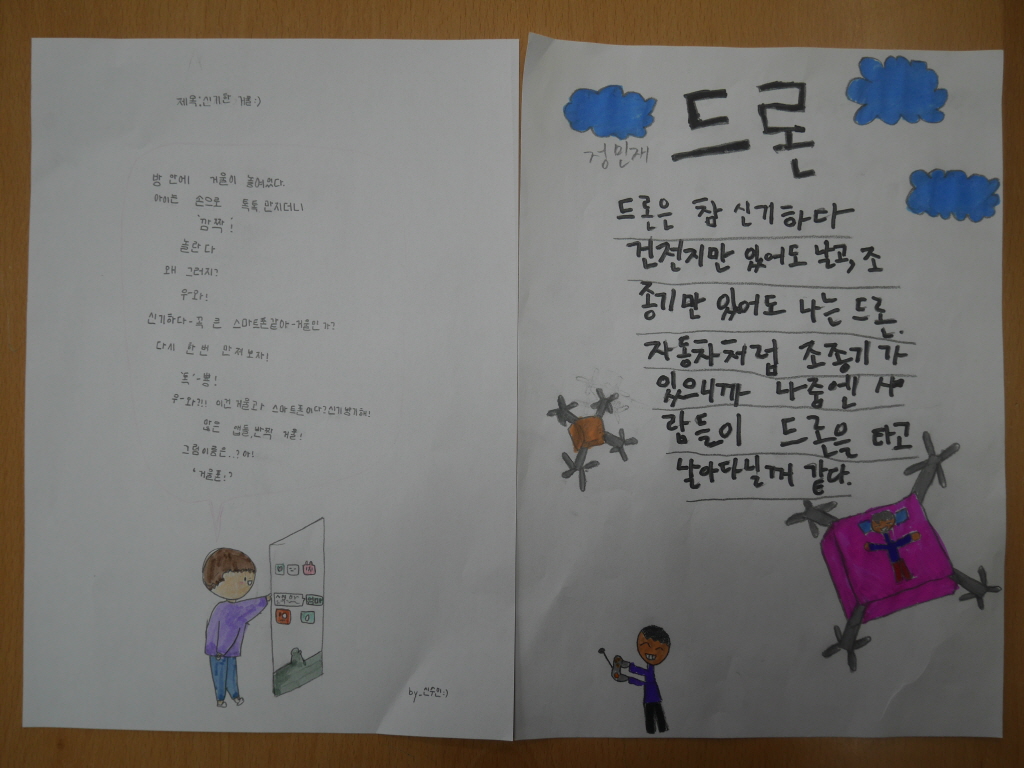 제목:신기한 거울:)
방 안에 거울이 놓여있다.
아이는 손으로 톡톡 만지더니
'깜짝'!
놀란다
왜 그러지?
우-와!
신기하다-꼭 큰 스마트폰같아-거울인가?
다시 한번 만져보자!
'톡'-뿅!
우-와?!! 이건 거울과 스마트폰이다?신기방기해!
많은 앱들,반짝 거울!
그럼이름은..?아!
'거울폰:?
by_신수진:)
드론
정민재
드론은 참 신기하다
건전지만 있어도 날고, 조
종기만 있어도 나는 드론.
자동차처럼 조종기가
있으니까 나중엔 사
람들이 드론을 타고
날아다닐꺼 같다.